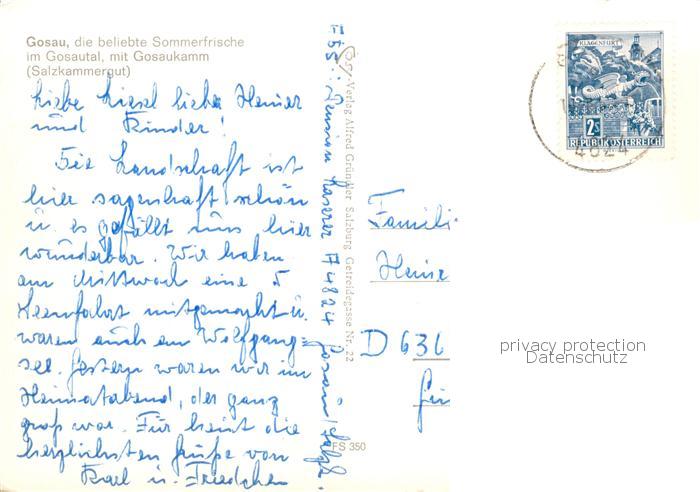 Gosau, die beliebte Sommerfrische
im Gosautal, mit Gosaukamm
(Salzkammergut)
Liebe Liesel lieber Heiner
und Kinder!
Die Landschaft ist
hier sagenhaft schön
u. es gefällt uns hier
wunderbar. Wir haben
am Mittwoch eine 5
Seenfahrt mitgemacht u.
waren auch am Wolfgang-
see. Gestern waren wir im
Heimatabend, der ganz
groß war. Für heut die
herzlichsten Grüße von
Karl u. Friedchen
Pension Kaserer A 4824 Gosau
Verlag Alfred Gründler Salzburg Getreidegasse Nr. 22
FS 350
KLAGENFURT
2S
REPUBLIK ÖSTERREICH
4824
Famili
Heine
D 636
privacy protection
Datenschutz